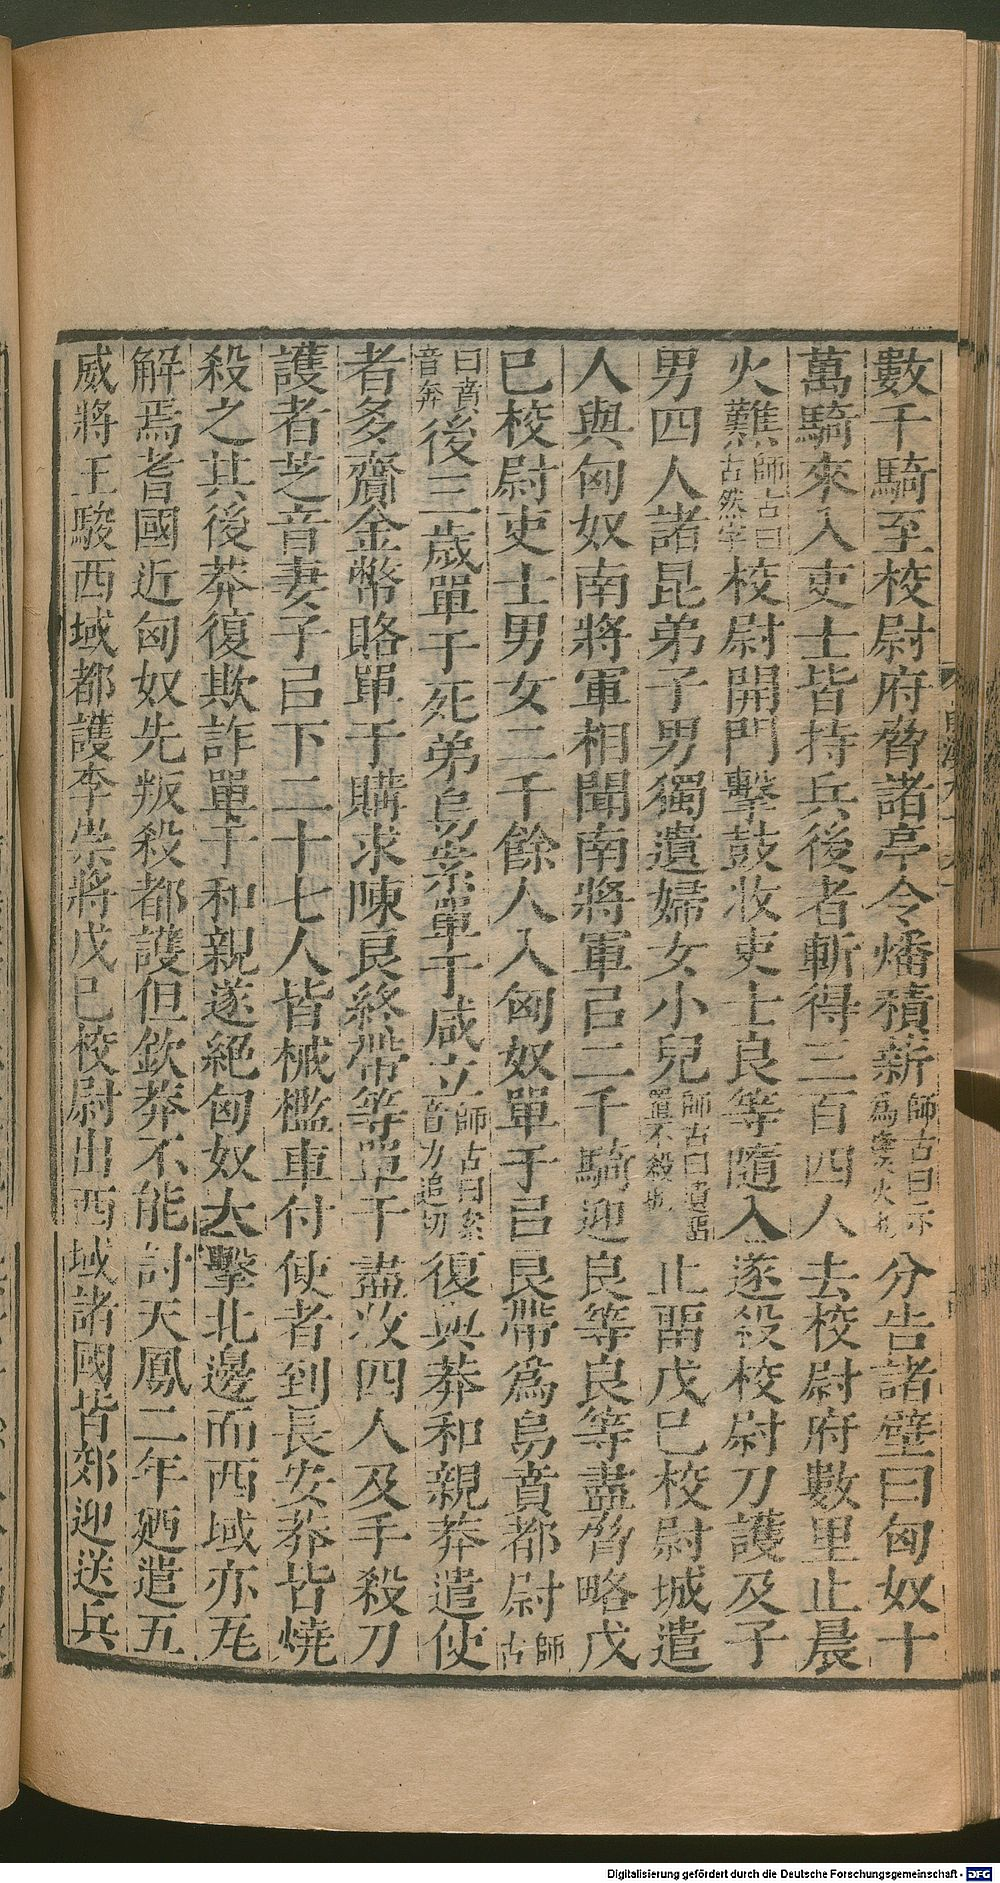 數千騎至校尉府脅諸亭令燔積薪師古曰示為㷭火也分告諸壁曰匈奴十
萬騎來入吏士皆持兵後者斬得三百四人去校尉府數里止晨
火難師古曰古然字校尉開門擊鼓收吏士良等隨入遂殺校尉刀護及子
男四人諸昆弟子男獨遺婦女小兒師古曰遺留置不殺也止留戊已校尉城遣
人與匈奴南將軍相聞南將軍㠯二千騎迎良等良等盡脅略戊
已校尉吏士男女二千餘人入匈奴單于㠯良帶為烏賁都尉師古
曰賁音奔後三歲單于死弟烏絫單于咸立師古曰絫音力追切復與莽和親莽遣使
者多齎金幣賂單于購求陳良終帶等單于盡收四人及手殺刀
護者芝音妻子㠯下二十七人皆械檻車付使者到長安莽皆燒
殺之其後莽復欺詐單于和親遂絕匈奴大擊北邊而西域亦瓦
解焉耆國近匈奴先叛殺都護但欽莽不能討天鳳二年廼遣五
威將王駿西域都護李崇將戊已校尉出西域諸國皆郊迎送兵
Digitalisierung gefördert durch die Deutsche Forschungsgemeinschaft - DFG